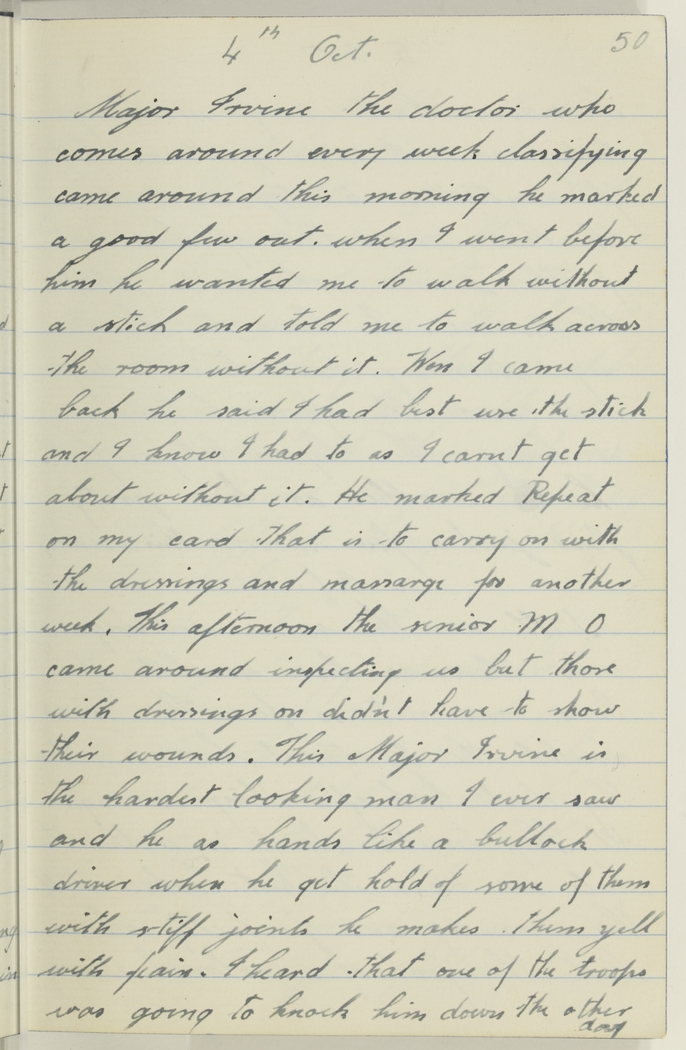 50
4th Oct.
Major Irvine the doctor who
comes around every week classifying
came around this morning he marked
a good few out. when I went before
him he wanted me to walk without
a stick and told me to walk across
the room without it. Wen I came
back he said I had best use the stick
and I know I had to as I carnt get
about without it. He marked Repeat
on my card that is to carry on with
the dressings and massarge for another
week. This afternoon the senior M O
came around inspecting us but those
with dressings on didn't have to show
their wounds. This Major Irvine is
the hardest looking man I ever saw
and he as hands like a bullock
driver when he get hold of some of them
with stiff joints he makes them yell
with pain. I heard that one of the troops
was going to knock him down the other
day